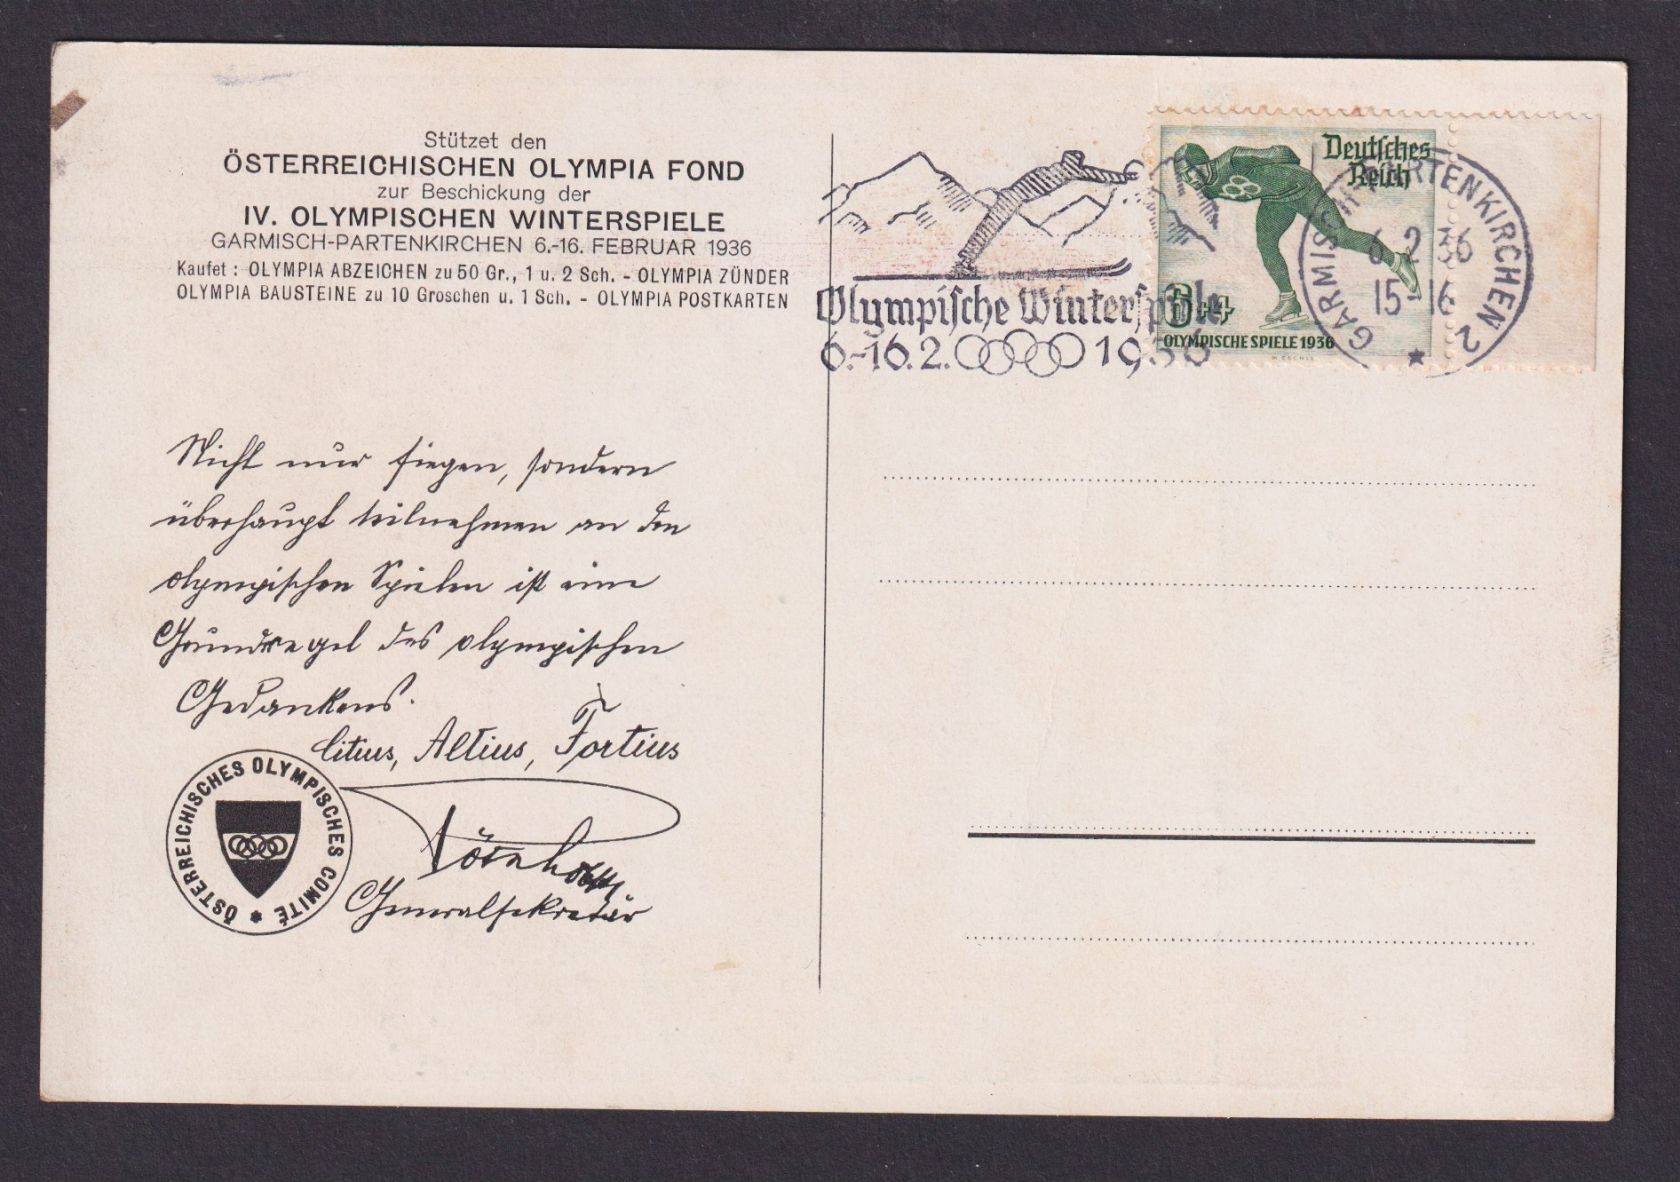 Stützet den
ÖSTERREICHISCHEN OLYMPIA FOND
zur Beschickung der
IV. OLYMPISCHEN WINTERSPIELE
GARMISCH-PARTENKIRCHEN 6.-16. FEBRUAR 1936
Kaufet : OLYMPIA ABZEICHEN zu 50 Gr., 1 u. 2 Sch. - OLYMPIA ZÜNDER
OLYMPIA BAUSTEINE zu 10 Groschen u. 1 Sch. - OLYMPIA POSTKARTEN
Nicht nur siegen, sondern
überhaupt teilnehmen an den
olympischen Spielen ist eine
Grundregel des olympischen
Gedankens.
Citius, Altius, Fortius
Generalsekretär
ÖSTERREICHISCHES OLYMPISCHES COMITÉ *
Olympische Winterspiele
6.-16.2. 1936
Deutsches
Reich
6+4
OLYMPISCHE SPIELE 1936
M. ESCHLE
GARMISCH-PARTENKIRCHEN 2
6.2.36
15-16
*